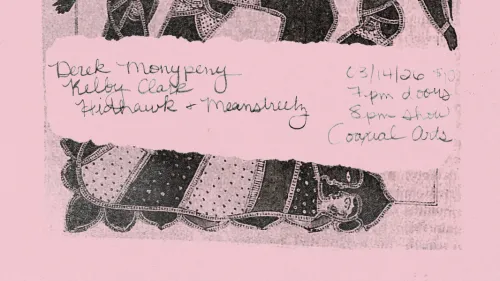 Derek Monypeny
Kelby Clark
Hidhawk + Meanstreetz
03/14/26 $10
7pm doors
8pm show
Coaxial Arts